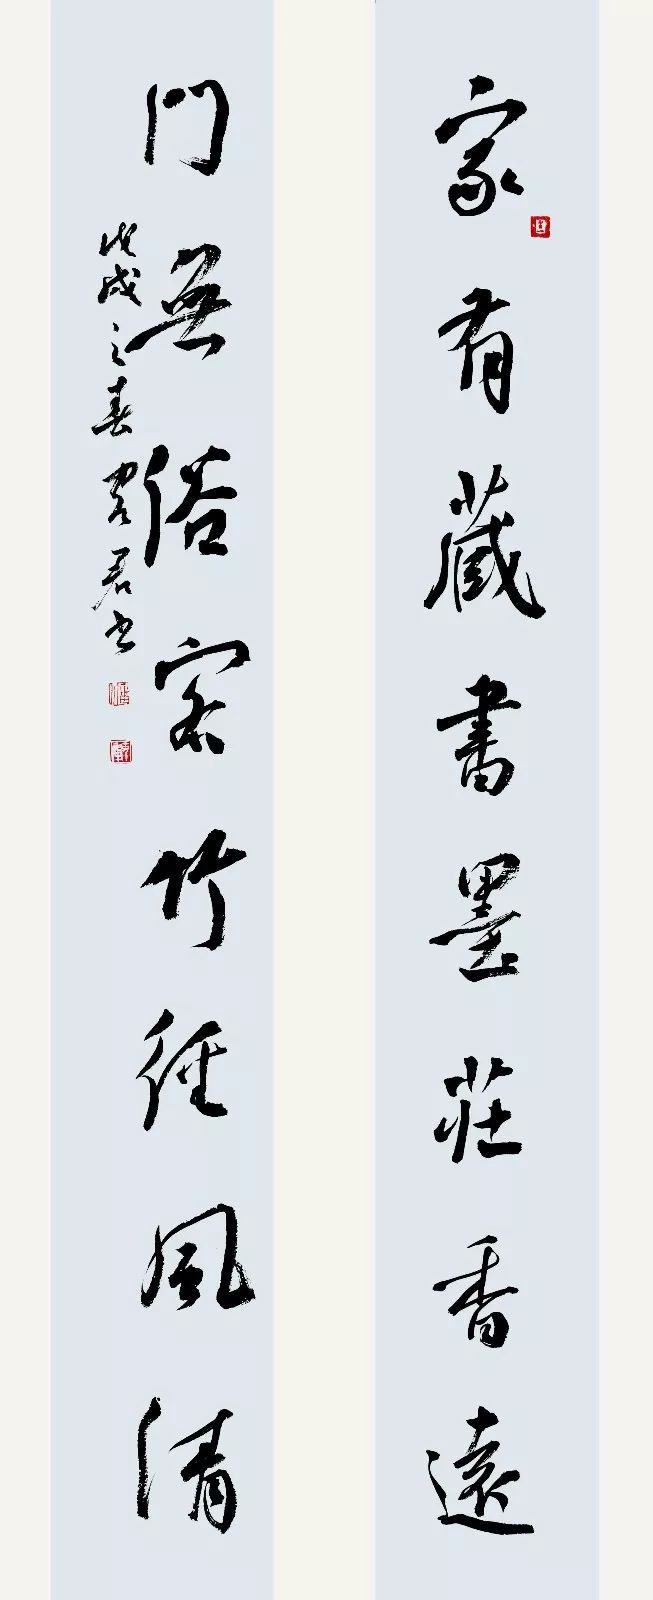 家有藏書墨莊香遠
門無俗客竹徑風清
戊戌之春 君书